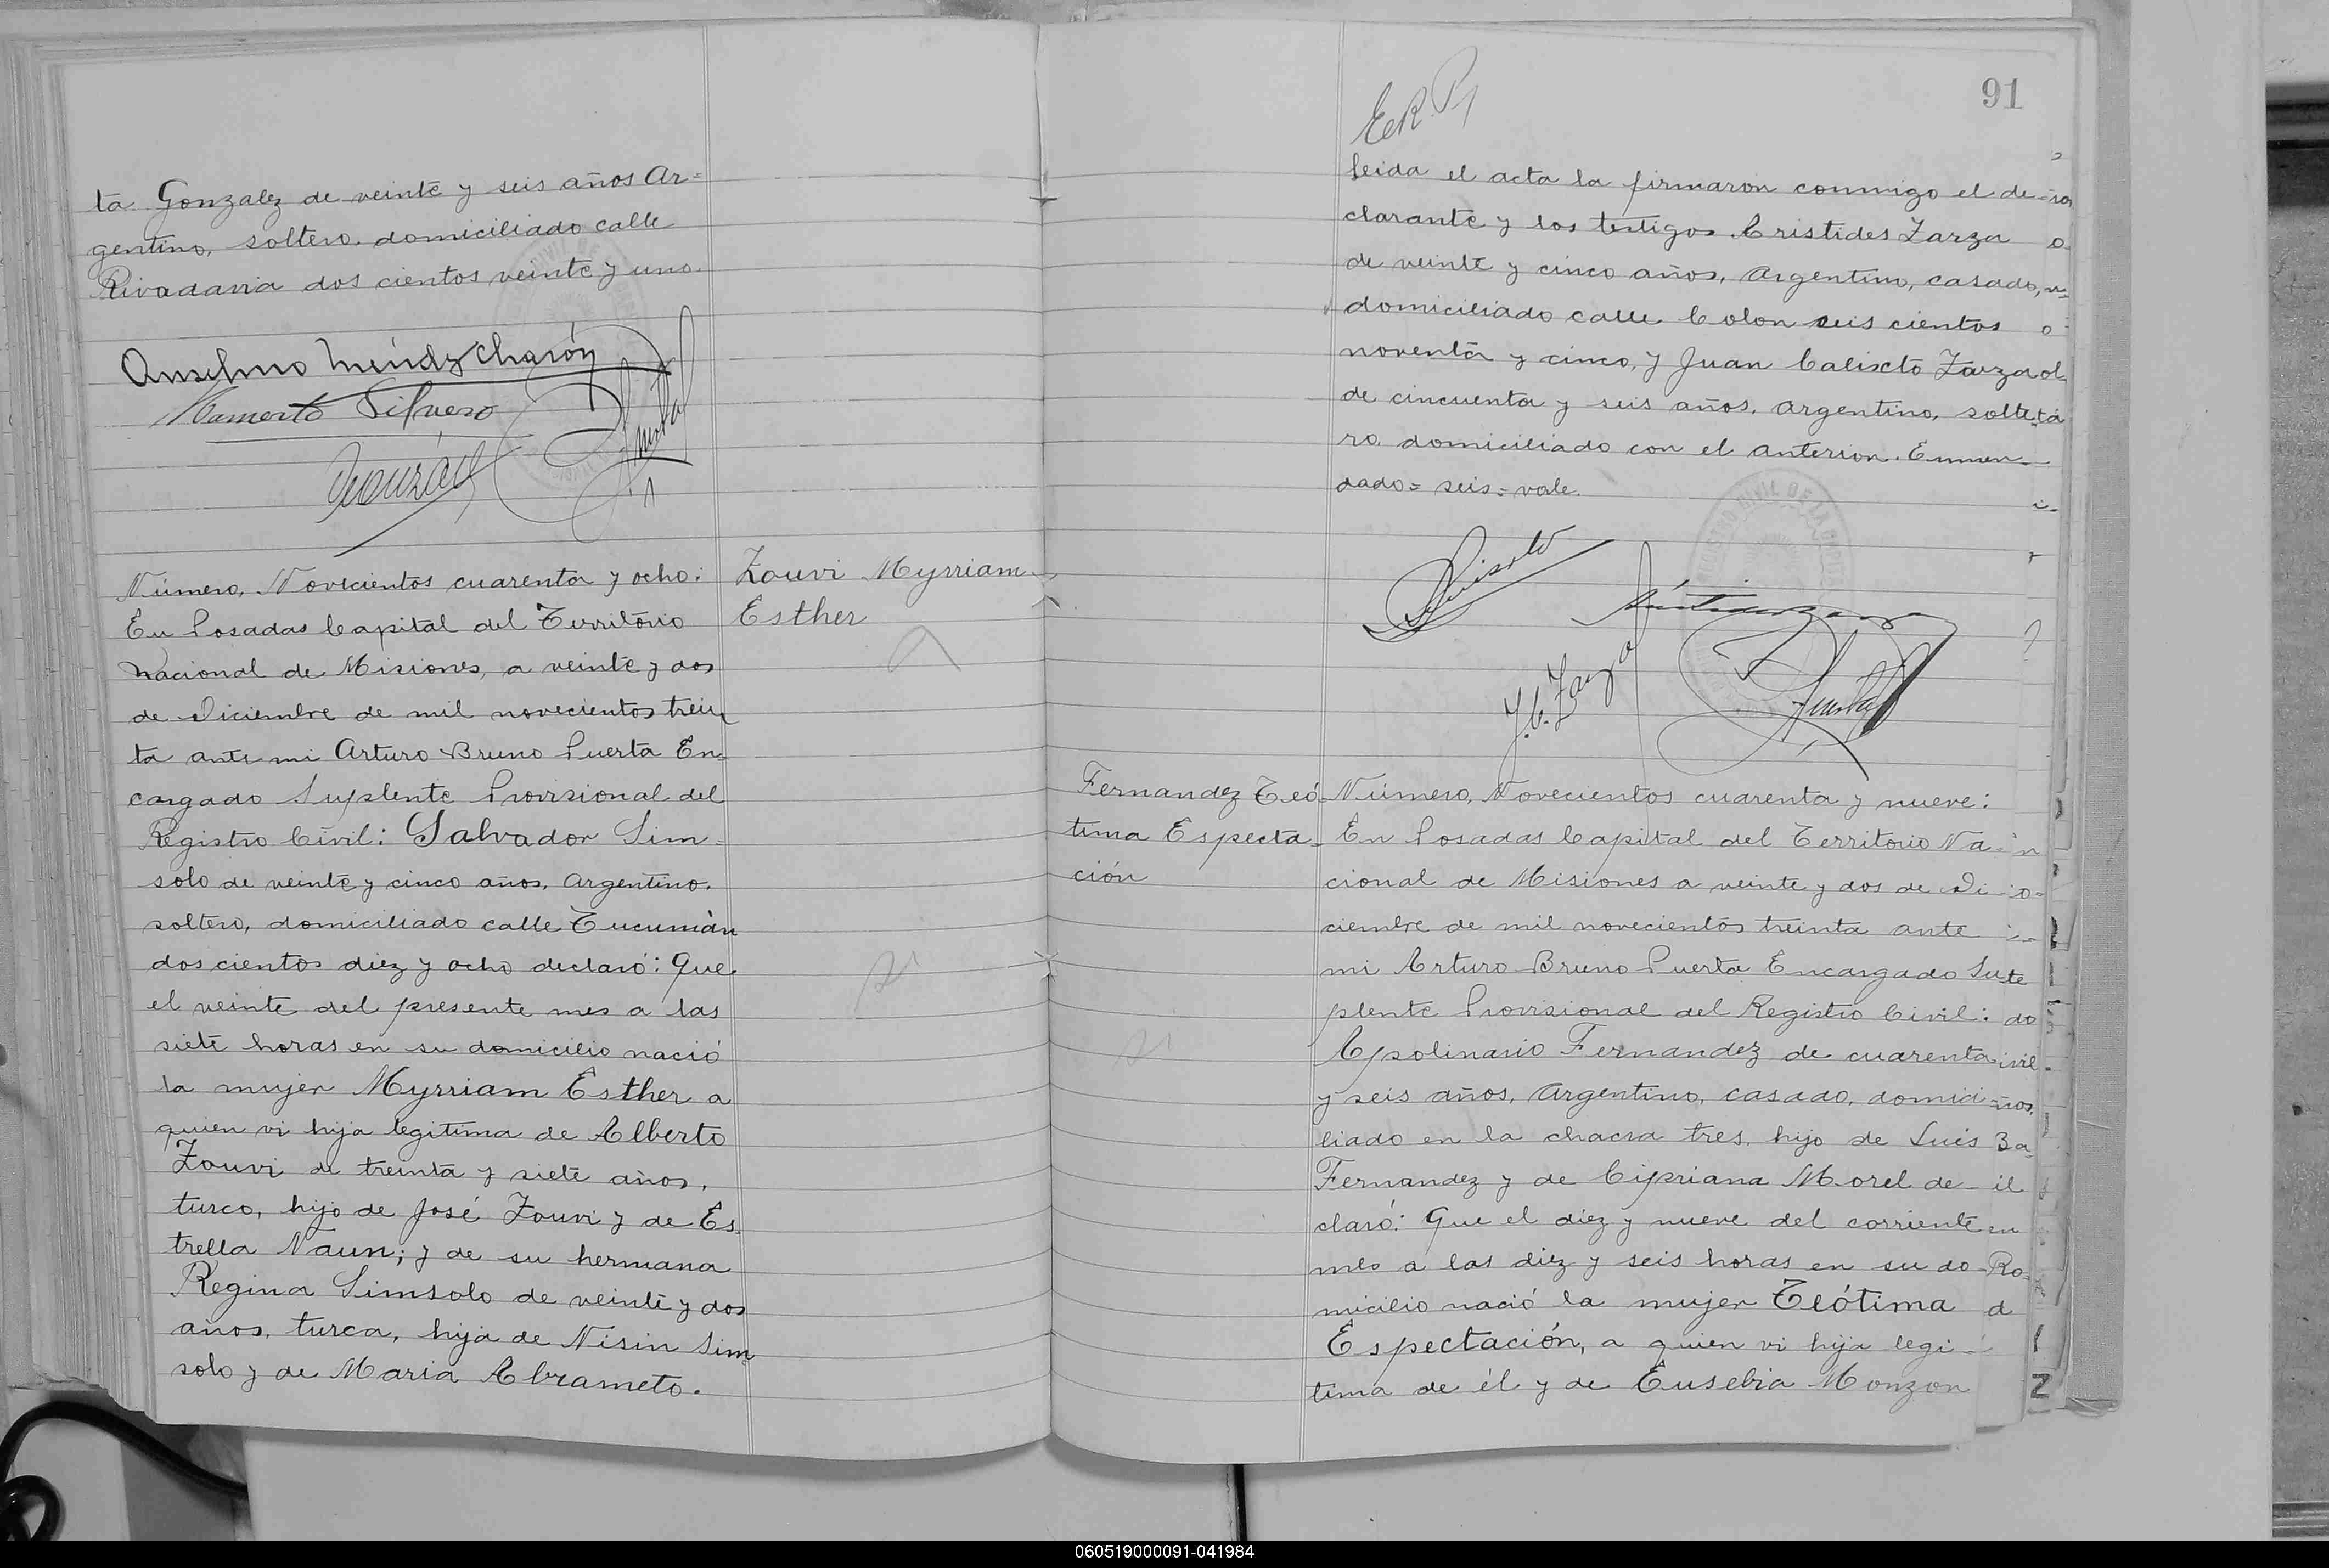 ta Gonzalez de veinte y seis años Ar=
gentino, soltero, domiciliado calle
Rivadavia dos cientos veinte y uno.
Número, Novecientos cuarenta y ocho:
En Posadas Capital del Território
nacional de Misiones, a veinte y dos
de Diciembre de mil novecientos trein
ta ante mi Arturo Bruno Puerta En=
cargado Suplente Provisional del
Registro Civil: Salvador Sim=
solo de veinte y cinco años, Argentino.
soltero, domiciliado calle Tucumán
dos cientos diez y ocho declaró: Que
el veinte del presente mes a las
siete horas en su domicilio nació
la mujer Myrriam Esther a
quien vi hija legitima de Alberto
Zouvi de treinta y siete años,
turco, hijo de José Zouvi y de Es
trella Naun; y de su hermana
Regina Simsolo de veinte y dos
años, turca, hija de Nisin Sim=
solo y de Maria Abrameto.
Zouvi Myrriam
Esther
91
leida el acta la firmaron conmigo el de=
clarante y los testigos Aristides Zarza
de veinte y cinco años, Argentino, casado,
domiciliado calle Colon seis cientos
noventa y cinco, y Juan Calixto Zarza
de cincuenta y seis años, argentino, solte
ro domiciliado con el anterior. Enmen-
dado= seis= vale.
J. C. Zarza
Fernandez Teó-
tima Especta-
ción
Número, Novecientos cuarenta y nueve:
En Posadas Capital del Territorio Na-
cional de Misiones a veinte y dos de Di-
ciembre de mil novecientos treinta ante
mi Arturo Bruno Puerta Encargado Su-
plente Provisional del Registro Civil:
Apolinario Fernandez de cuarenta
y seis años, Argentino, casado, domici
liado en la chacra tres, hijo de Luis
Fernandez y de Cipriana Morel de-
claró: Que el diez y nueve del corriente
mes a las diez y seis horas en su do-
micilio nació la mujer Teótima
Espectación, a quien vi hija legi-
tima de él y de Eusebia Monzon
060519000091-041984